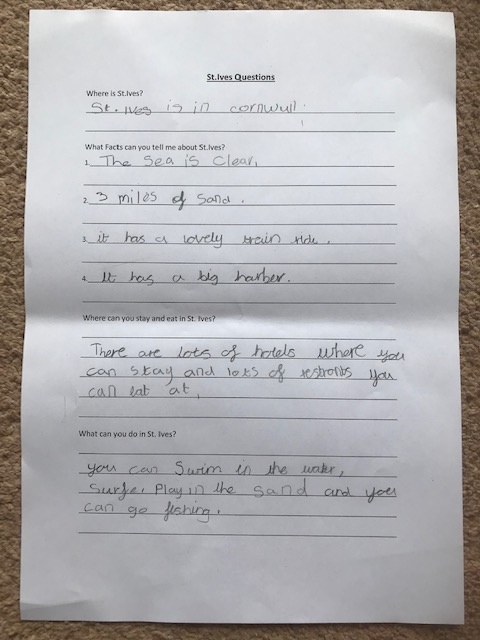 St.Ives Questions
Where is St.Ives?
St. Ives is in cornwull.
What Facts can you tell me about St.Ives?
1. The Sea is Clear,
2. 3 miles of Sand.
3. it has a lovely train ride.
4. It has a big harber.
Where can you stay and eat in St. Ives?
There are lots of hotels where you
can stay and lots of restronts you
can eat at,
What can you do in St. Ives?
you can Swim in the water,
Surfe, Play in the sand and you
can go fishing.